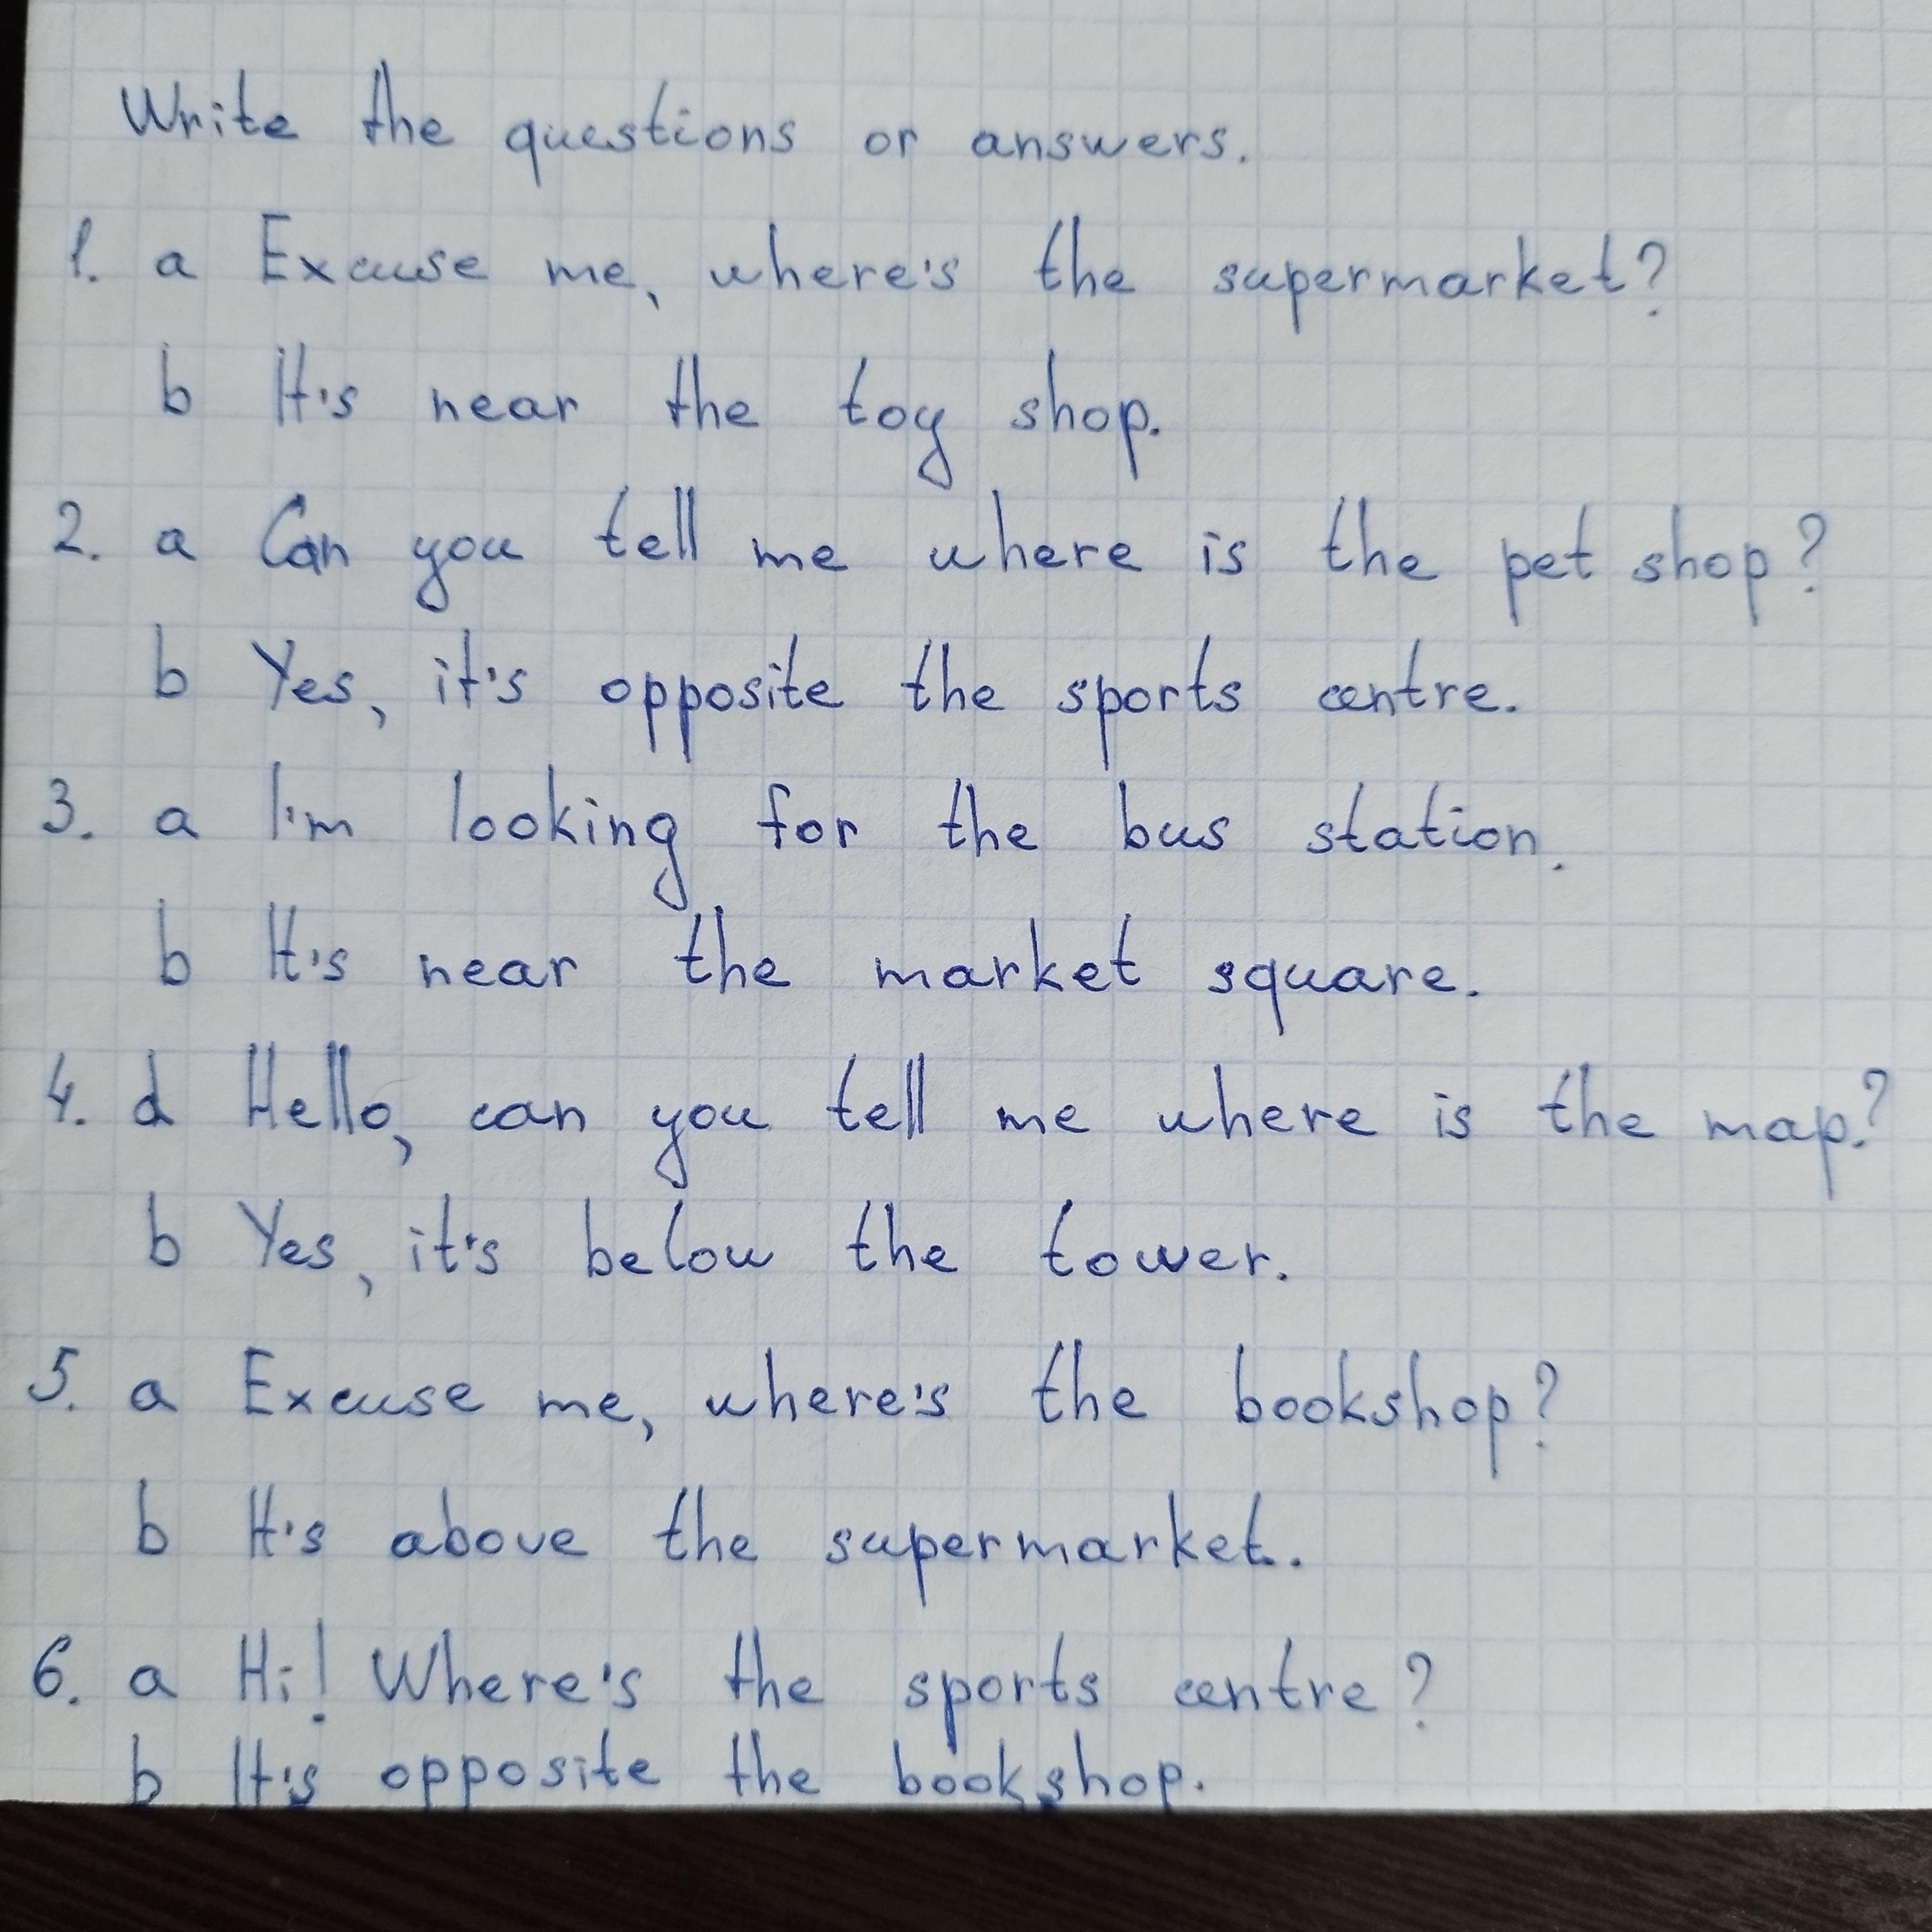 Write the questions or answers.
1. a Excuse me, where's the supermarket?
b It's near the toy shop.
2. a Can you tell me where is the pet shop?
b Yes, it's opposite the sports centre.
3. a I'm looking for the bus station.
b It's near the market square.
4. d Hello, can you tell me where is the map?
b Yes, it's below the tower.
5. a Excuse me, where's the bookshop?
b It's above the supermarket.
6. a Hi! Where's the sports centre?
b It's opposite the bookshop.